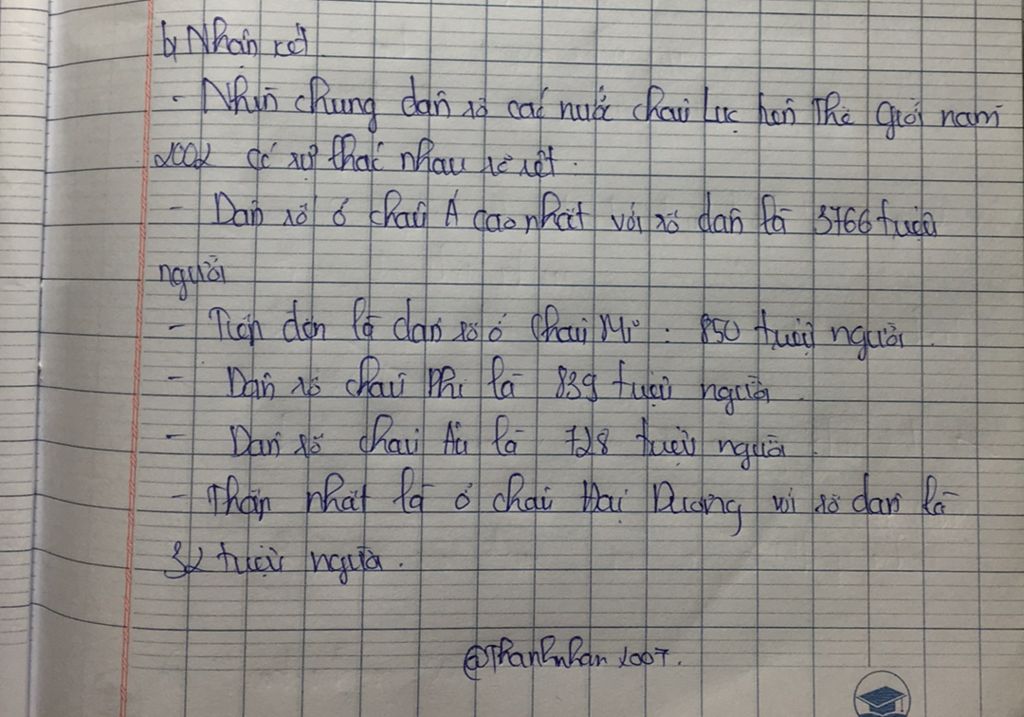 b, Nhận xét
- Nhìn chung dân số các nước châu lục trên Thế Giới năm
2002 có sự khác nhau rõ rệt.
- Dân số ở châu Á cao nhất với số dân là 3766 triệu
người
- Tiếp đến là dân số ở Châu Mĩ : 850 triệu người.
- Dân số châu Phi là 839 triệu người.
- Dân số châu Âu là 728 triệu người.
- Thấp nhất là ở châu Đại Dương với số dân là
32 triệu người.
@Thanhnhan2007.